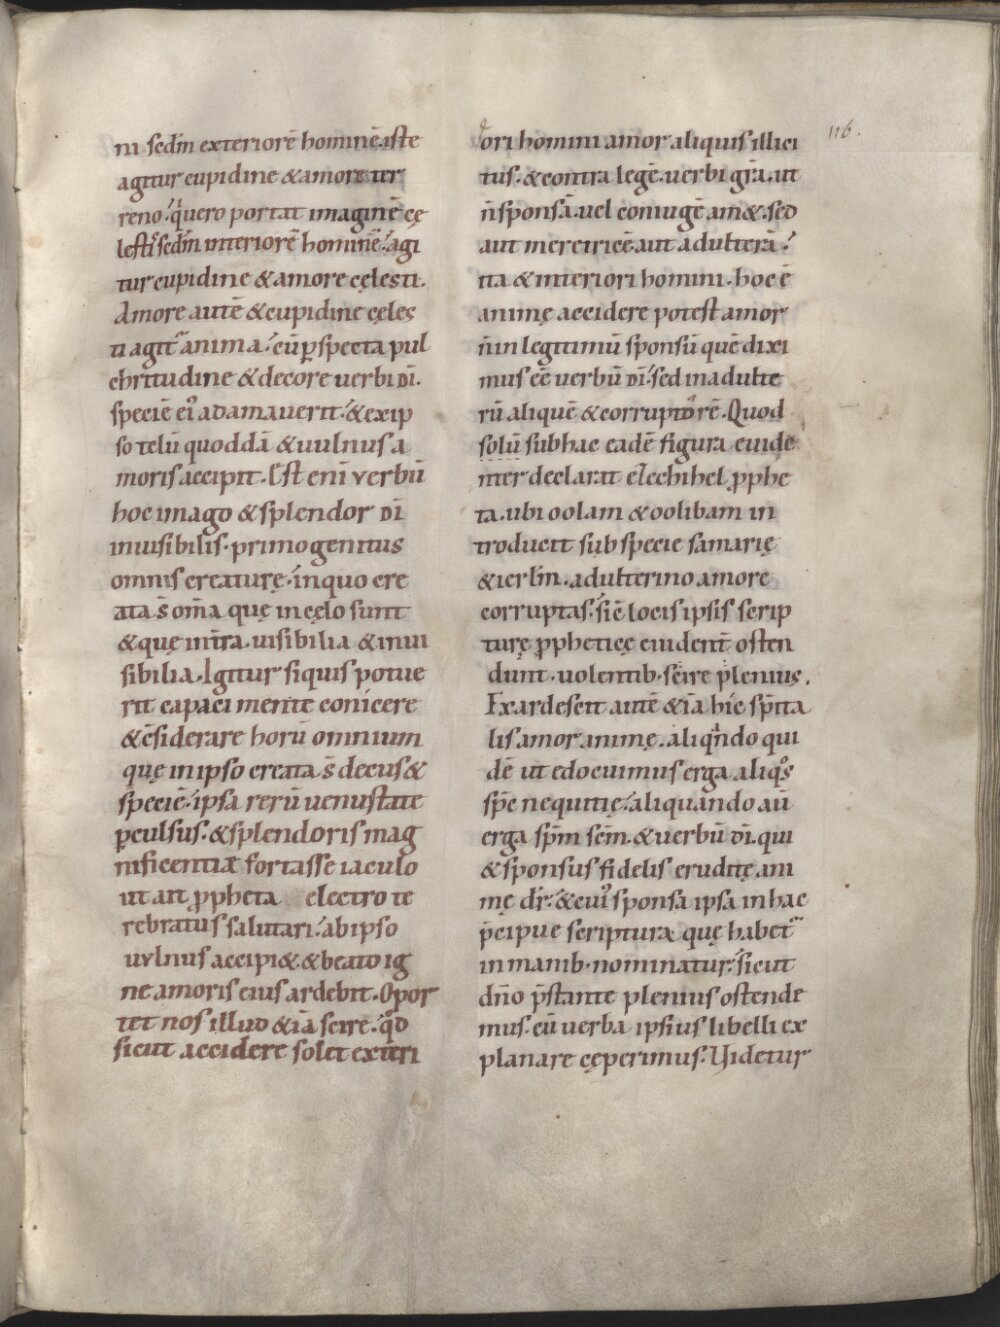 ni. sedm̄ exteriorē hominē. iste
agitur cupidine & amore ter
reno. q̇ uero portat imaginē cę
lestis sedm̄ interiorē hominē. agi
tur cupidine & amore cęlesti.
Amore autē & cupidine cęles
ti agit᷑ anima. cū ꝑspecta pul
chritudine & decore uerbi dī.
speciē eiꝰ adamauerit. & ex ip
so telū quoddā & uulnus a
moris accipit. Est enī verbū
hoc imago & splendor dī
inuisibilis. primogenitus
omnis creaturę. in quo cre
ata s̄ om̄a quę in cęlo sunt
& quę in tr̄a. uisibilia & inui
sibilia. Igitur siquis potue
rit capaci mente conicere
& c̄siderare horū omnium
quę in ipso creata s̄ decus &
speciē. ipsa rerū uenustate
ꝑculsus. & splendoris mag
nificentia fortasse iaculo
ut ait ꝓpheta electro te
rebratus salutari. ab ipso
uvlnus accipi&. & beato ig
ne amoris eius ardebit. Opor
tet nos illud & iā scire. qd̄
sicut accidere solet exteri
116.
ori homini amor aliquis illici
tus. & contra legē. uerbi gr̄a. ut
n̄ sponsā. uel coniugē am&. sed
aut meretricē. aut adulterā.
ita & interiori homini. hoc ē
animę accidere potest amor
n̄ in legitimū sponsū quē dixi
mus eē uerbū dī. sed in adulte
rū aliquē & corruptorē. Quod
solū sub hac eadē figura euide
nter declarat eZechihel ꝓphe
ta. ubi oolam & oolibam in
troducit sub specie samarię
& ierlm̄. adulterino amore
corruptas. sic̄ locis ipsis scrip
turę ꝓpheticę euident̄ osten
dunt. uolentib. scire plenius.
Exardescit autē & iā hic sp̄ita
lis amor animę. aliqn̄do qui
dē ut edocuimus erga aliqͦs
sp̄c nequitię. aliquando aū
erga sp̄m sc̄m. & uerbū dī. qui
& sponsus fidelis eruditę ani
mę dr̄. & cuiꝰ sponsa ipsa in hac
p̄cipue scriptura quę habet᷑
in manib. nominatur. sicut
dn̄o p̄stante plenius ostende
mus. cū uerba ipsius libelli ex
planare cęperimus. Videtur